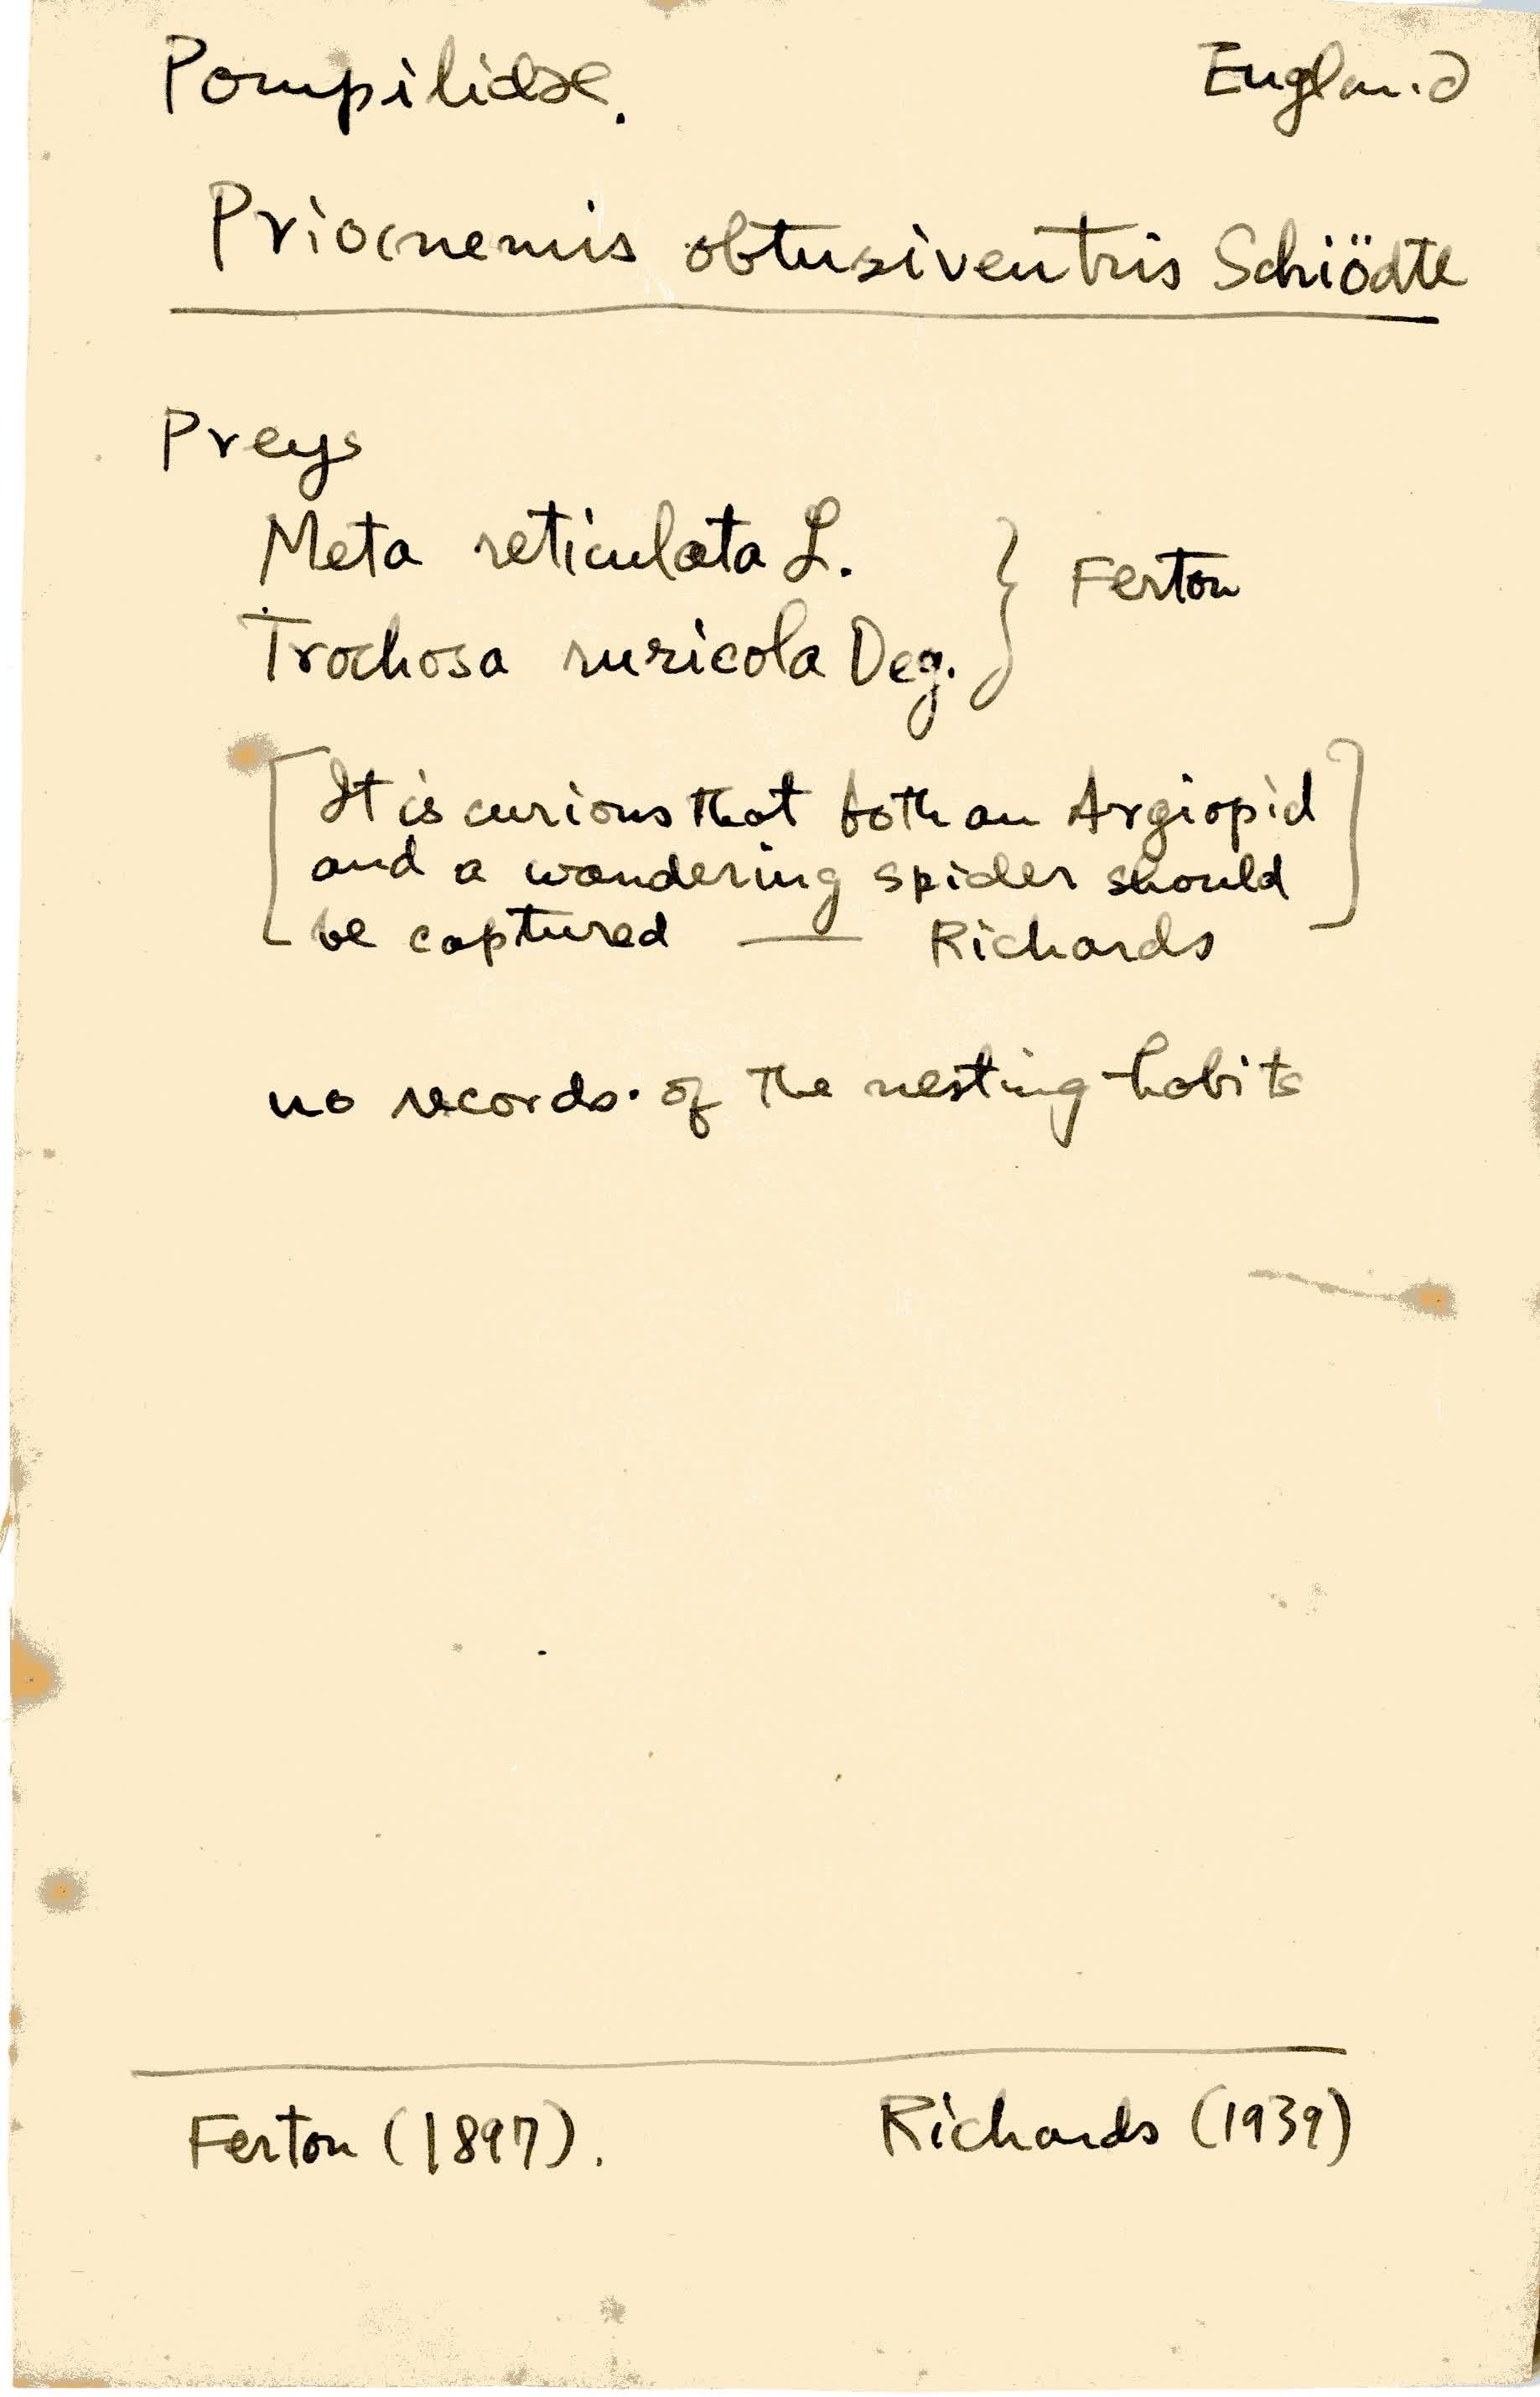 Pompilidae. England
Priocnemis obtusiventris Schiödte
Preys
Meta reticulata L.
} Ferton
Trochosa ruricola Deg.
[It is curious that both an Argiopid
and a wandering spider should
be captured — Richards]
no records. of the nesting habits
Ferton (1897). Richards (1939)